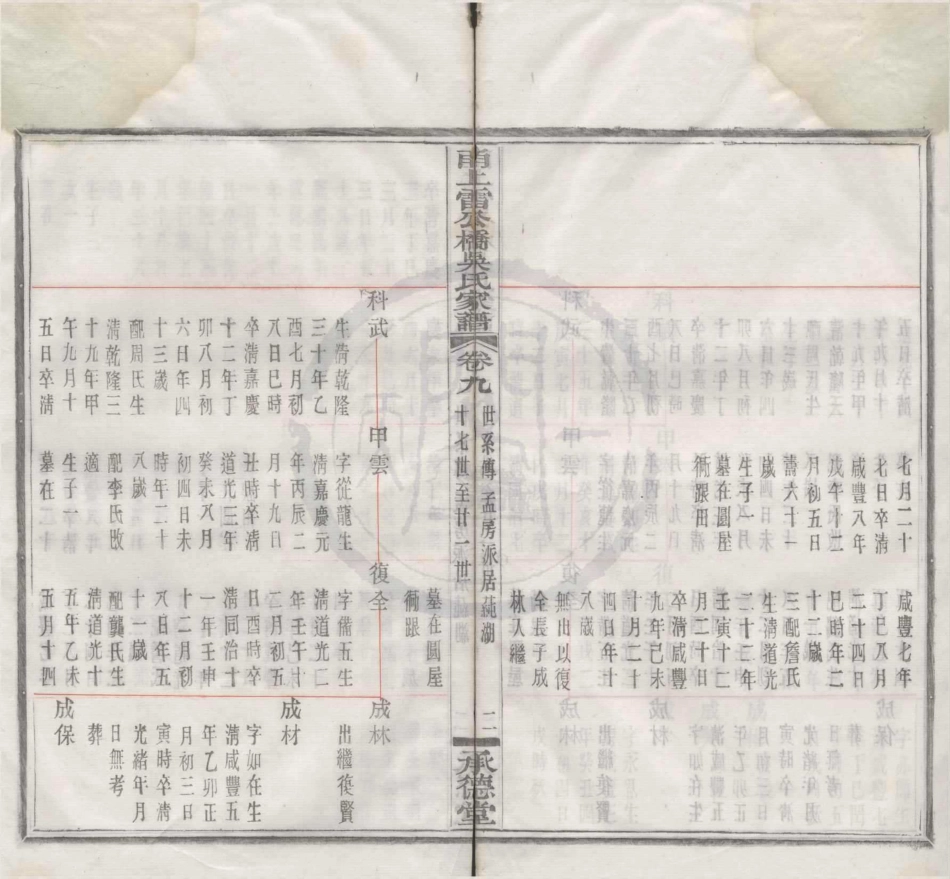 七月二十
七日卒清
咸豐八年
戊午十二
月初五日
壽六十一
歲
生子一
墓在圓屋
衕跟田
咸豐七年
丁巳八月
二十四日
巳時年三
十三歲
三配詹氏
生清道光
二十二年
壬寅十二
月二十日
卒清咸豐
九年己未
十月二十
四日年十
八歲
無出以復
全長子成
林入繼
甬上雷公橋吳氏家譜
卷九
世系傳 孟房派居蒓湖
十七世至廿一世
二
承德堂
科武
生清乾隆
三十年乙
酉七月初
八日巳時
卒清嘉慶
十二年丁
卯八月初
六日年四
十三歲
配周氏生
清乾隆三
十九年甲
午九月十
五日卒清
甲雲
字從龍生
清嘉慶元
年丙辰二
月十九日
丑時卒清
道光三年
癸未八月
初四日未
時年二十
八歲
配李氏改
適
生子一
墓在十一
墓在圓屋
衕跟
復全
字備五生
清道光二
年壬午十
二月初五
日酉時卒
清同治十
一年壬申
十二月初
八日年五
十一歲
配龔氏生
清道光十
五年乙未
五月十四
成林
出繼復賢
成材
字如在生
清咸豐五
年乙卯正
月初三日
寅時卒清
光緒年月
日無考
葬
成保